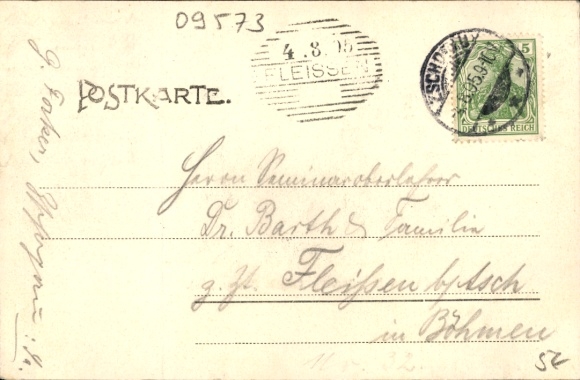 09573
4.8.05
FLEISSEN
ZSCHOPAU
5
DEUTSCHES REICH
POSTKARTE.
Herrn Seminaroberlehrer
Dr. Barth & Familie
z. Zt. Fleißen b/Asch
in Böhmen